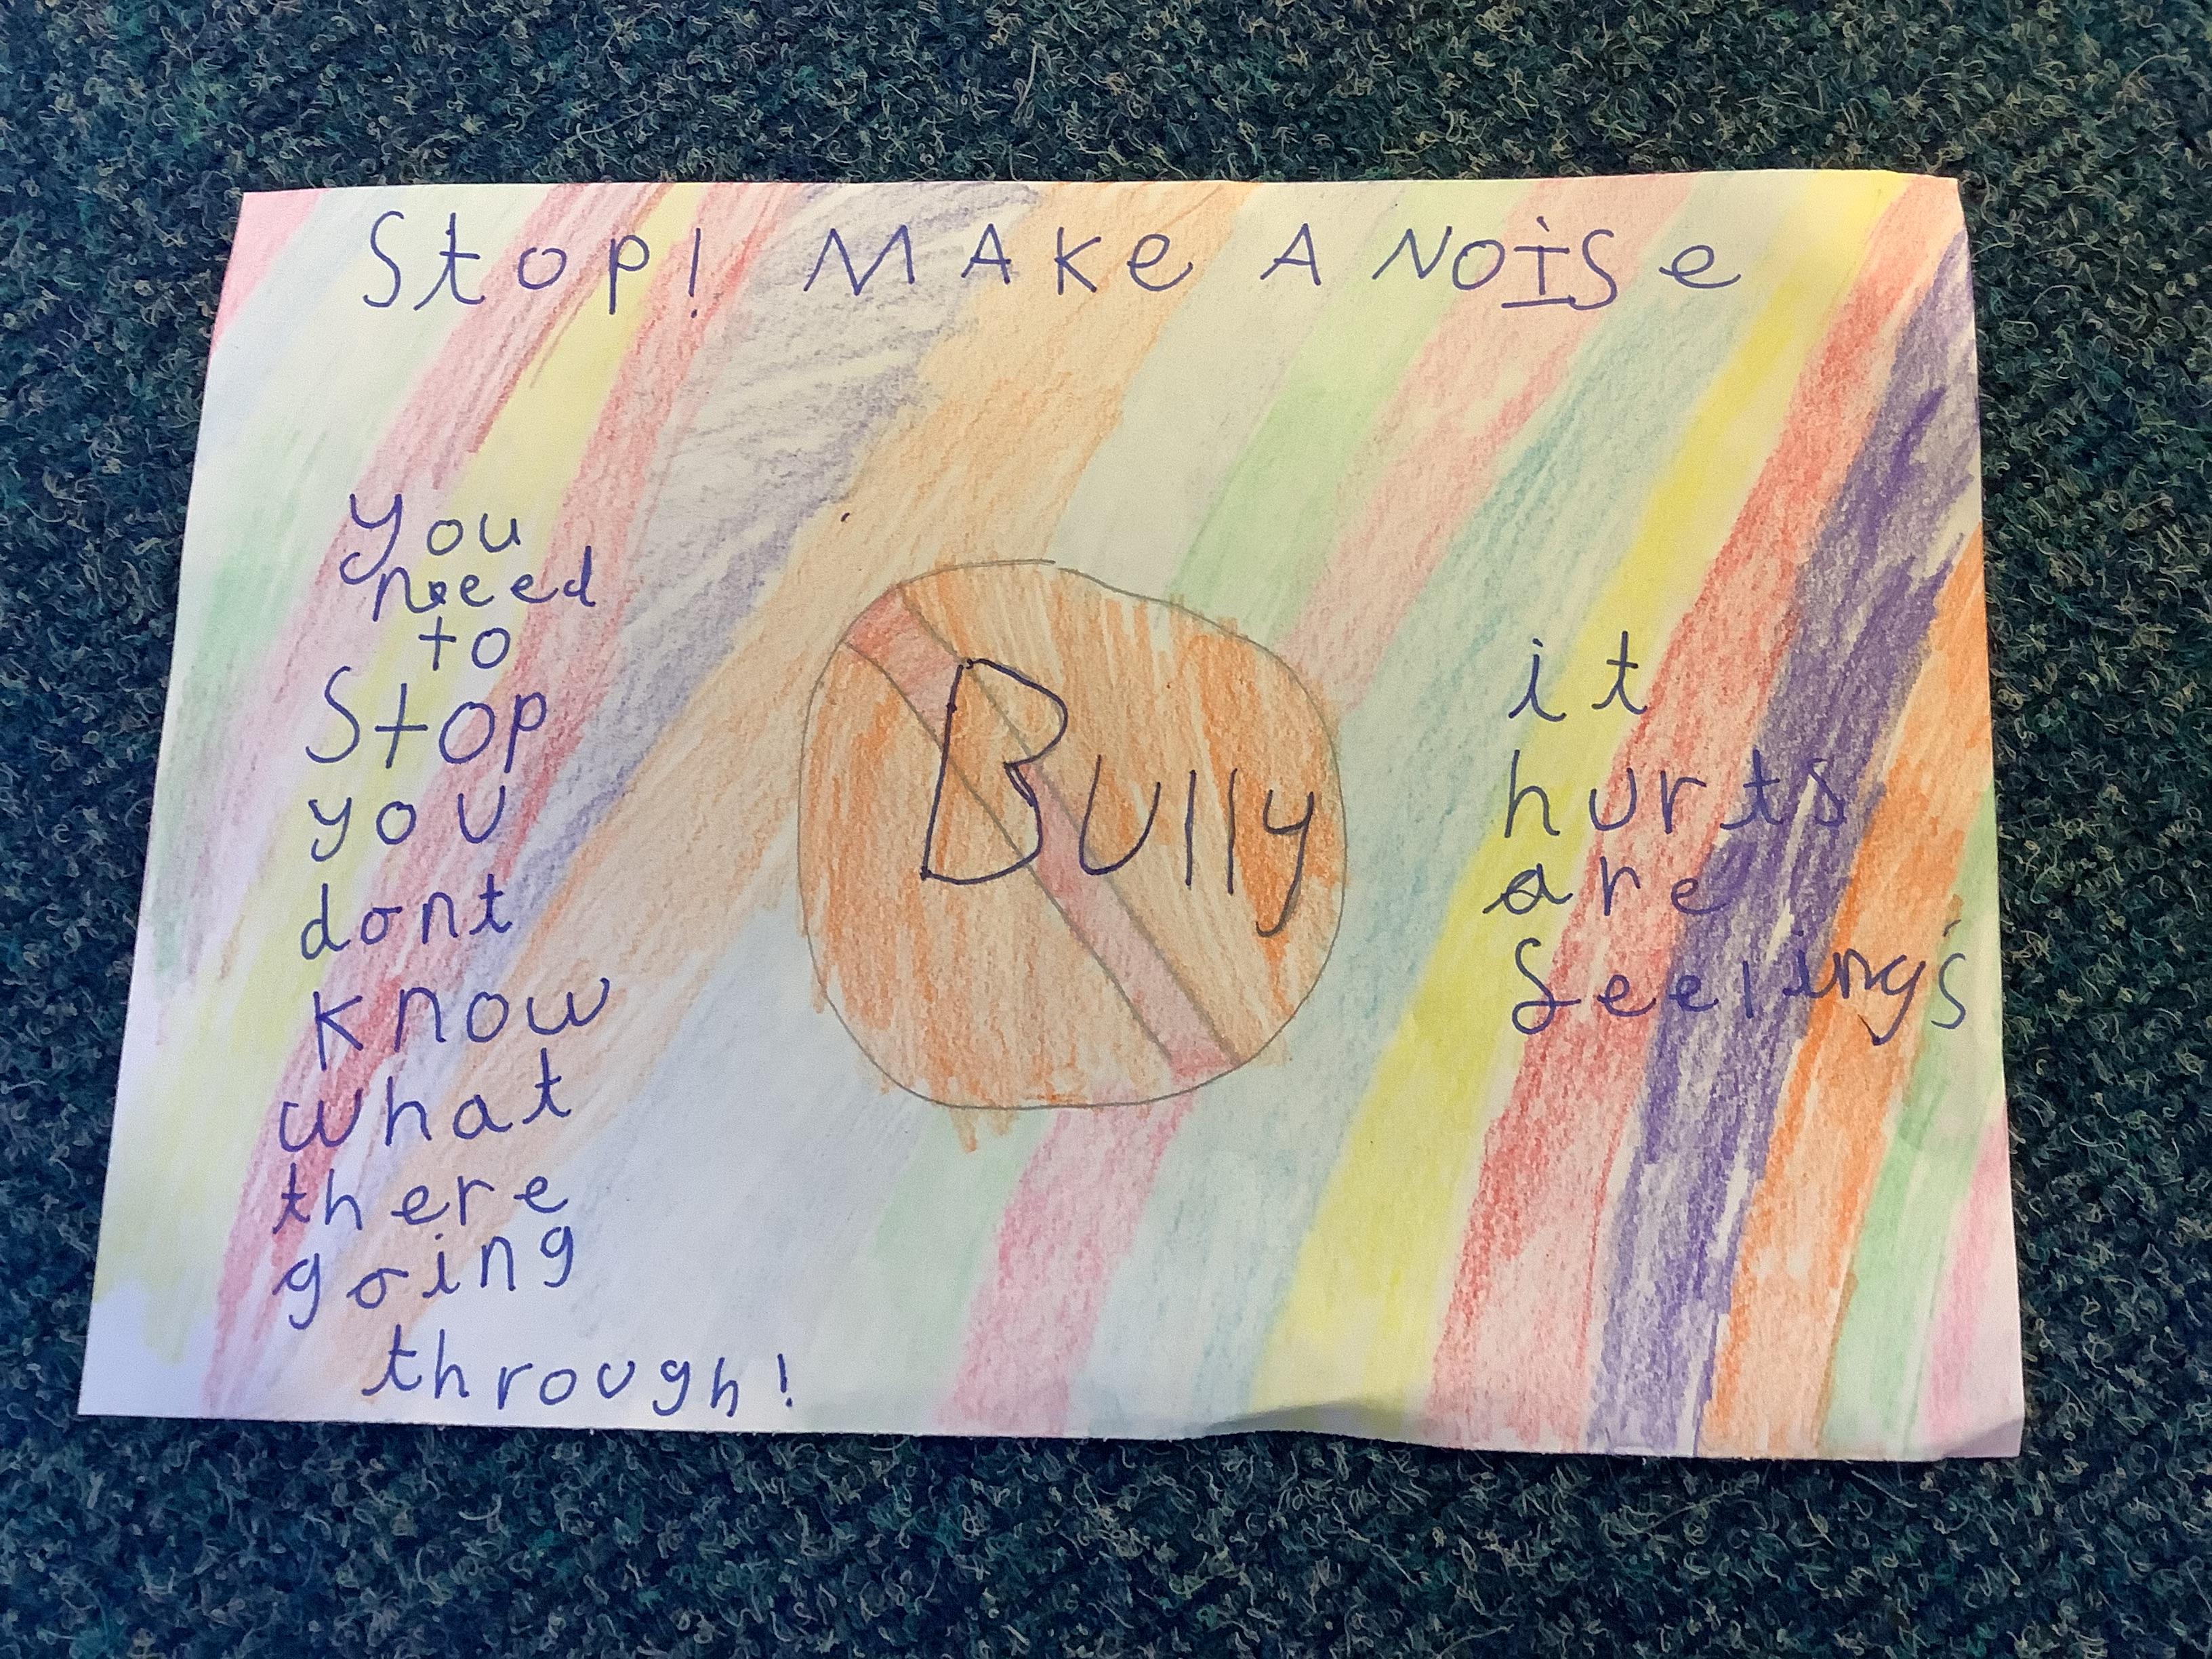 Stop! MAKe A NOISe
you
need
to
Stop
you
dont
know
what
there
going
through!
Bully
it
hurts
are
feeling's